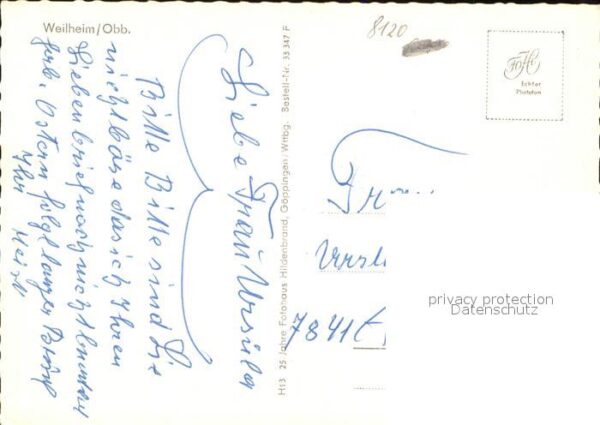 Weilheim/Obb.
8120
Liebe Frau Ursula
Bitte Bitte sind Sie
nicht böse das ich Ihren
Lieben brief noch nicht
hab. Ostern folgt langer Brief
Ihr
H13 25 Jahre Fotohaus Hildenbrand, Göppingen/Wttbg. Bestell-Nr. 33 347 F
Echter
Phototon
Fr
Ursu
7841
privacy protection
Datenschutz